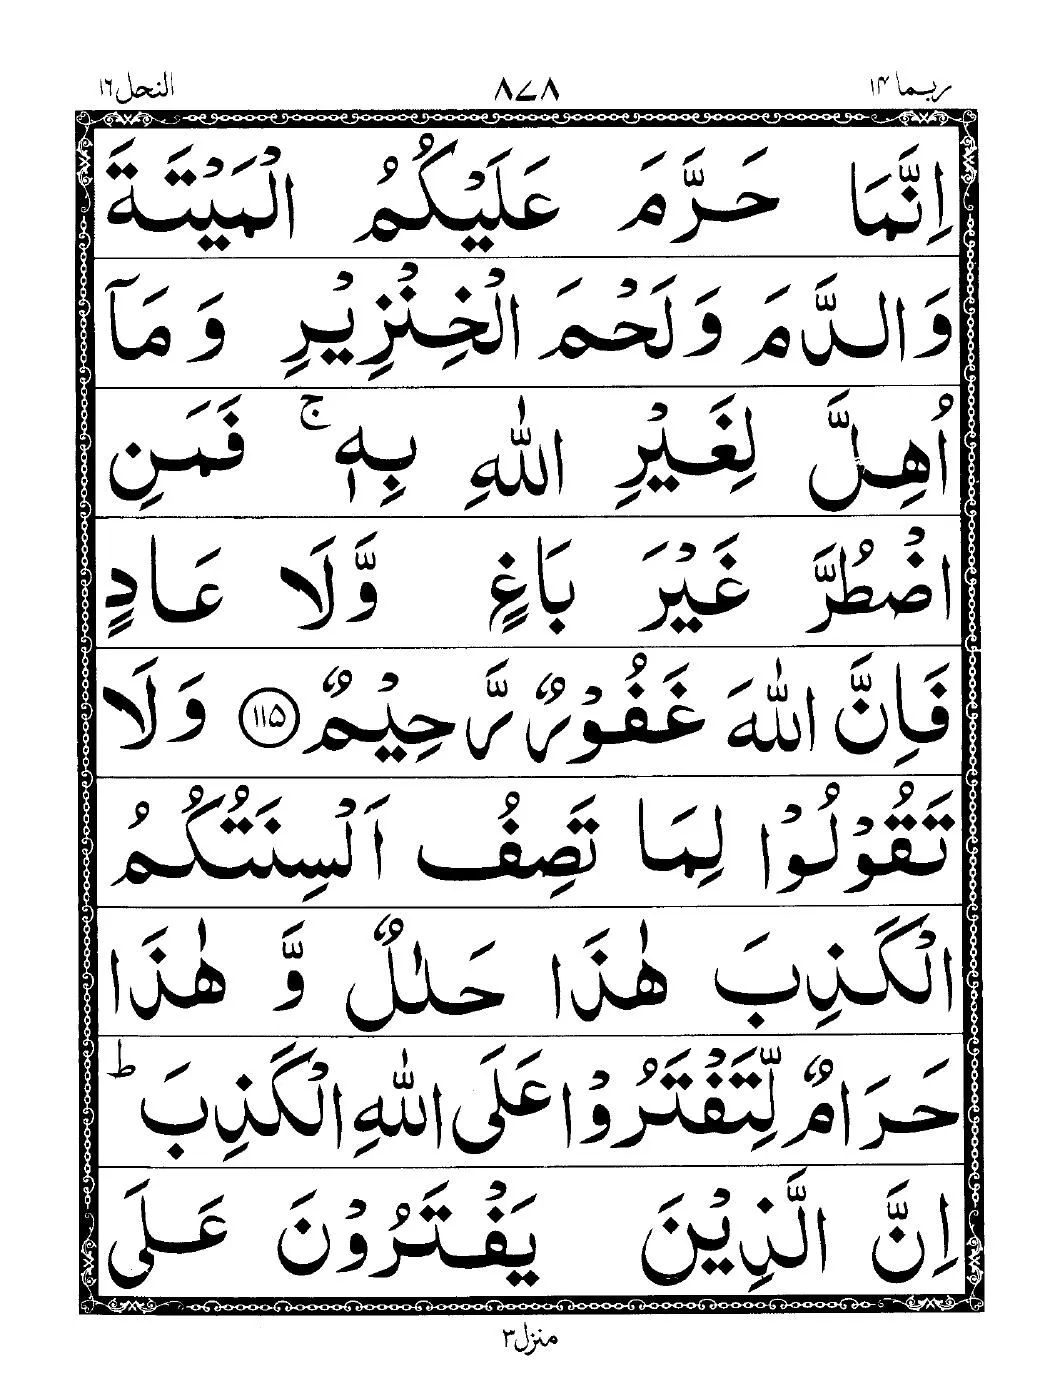 ربما ١٤ ٨٧٨ النحل ١٦
اِنَّمَا حَرَّمَ عَلَيْكُمُ الْمَيْتَةَ
وَالدَّمَ وَلَحْمَ الْخِنْزِيْرِ وَمَآ
اُهِلَّ لِغَيْرِ اللّٰهِ بِهٖ ۚ فَمَنِ
اضْطُرَّ غَيْرَ بَاغٍ وَّلَا عَادٍ
فَاِنَّ اللّٰهَ غَفُوْرٌ رَّحِيْمٌ ۝۱۱۵ وَلَا
تَقُوْلُوْا لِمَا تَصِفُ اَلْسِنَتُكُمُ
الْكَذِبَ هٰذَا حَلٰلٌ وَّهٰذَا
حَرَامٌ لِّتَفْتَرُوْا عَلَى اللّٰهِ الْكَذِبَ ؕ
اِنَّ الَّذِيْنَ يَفْتَرُوْنَ عَلَى
منزل ٣